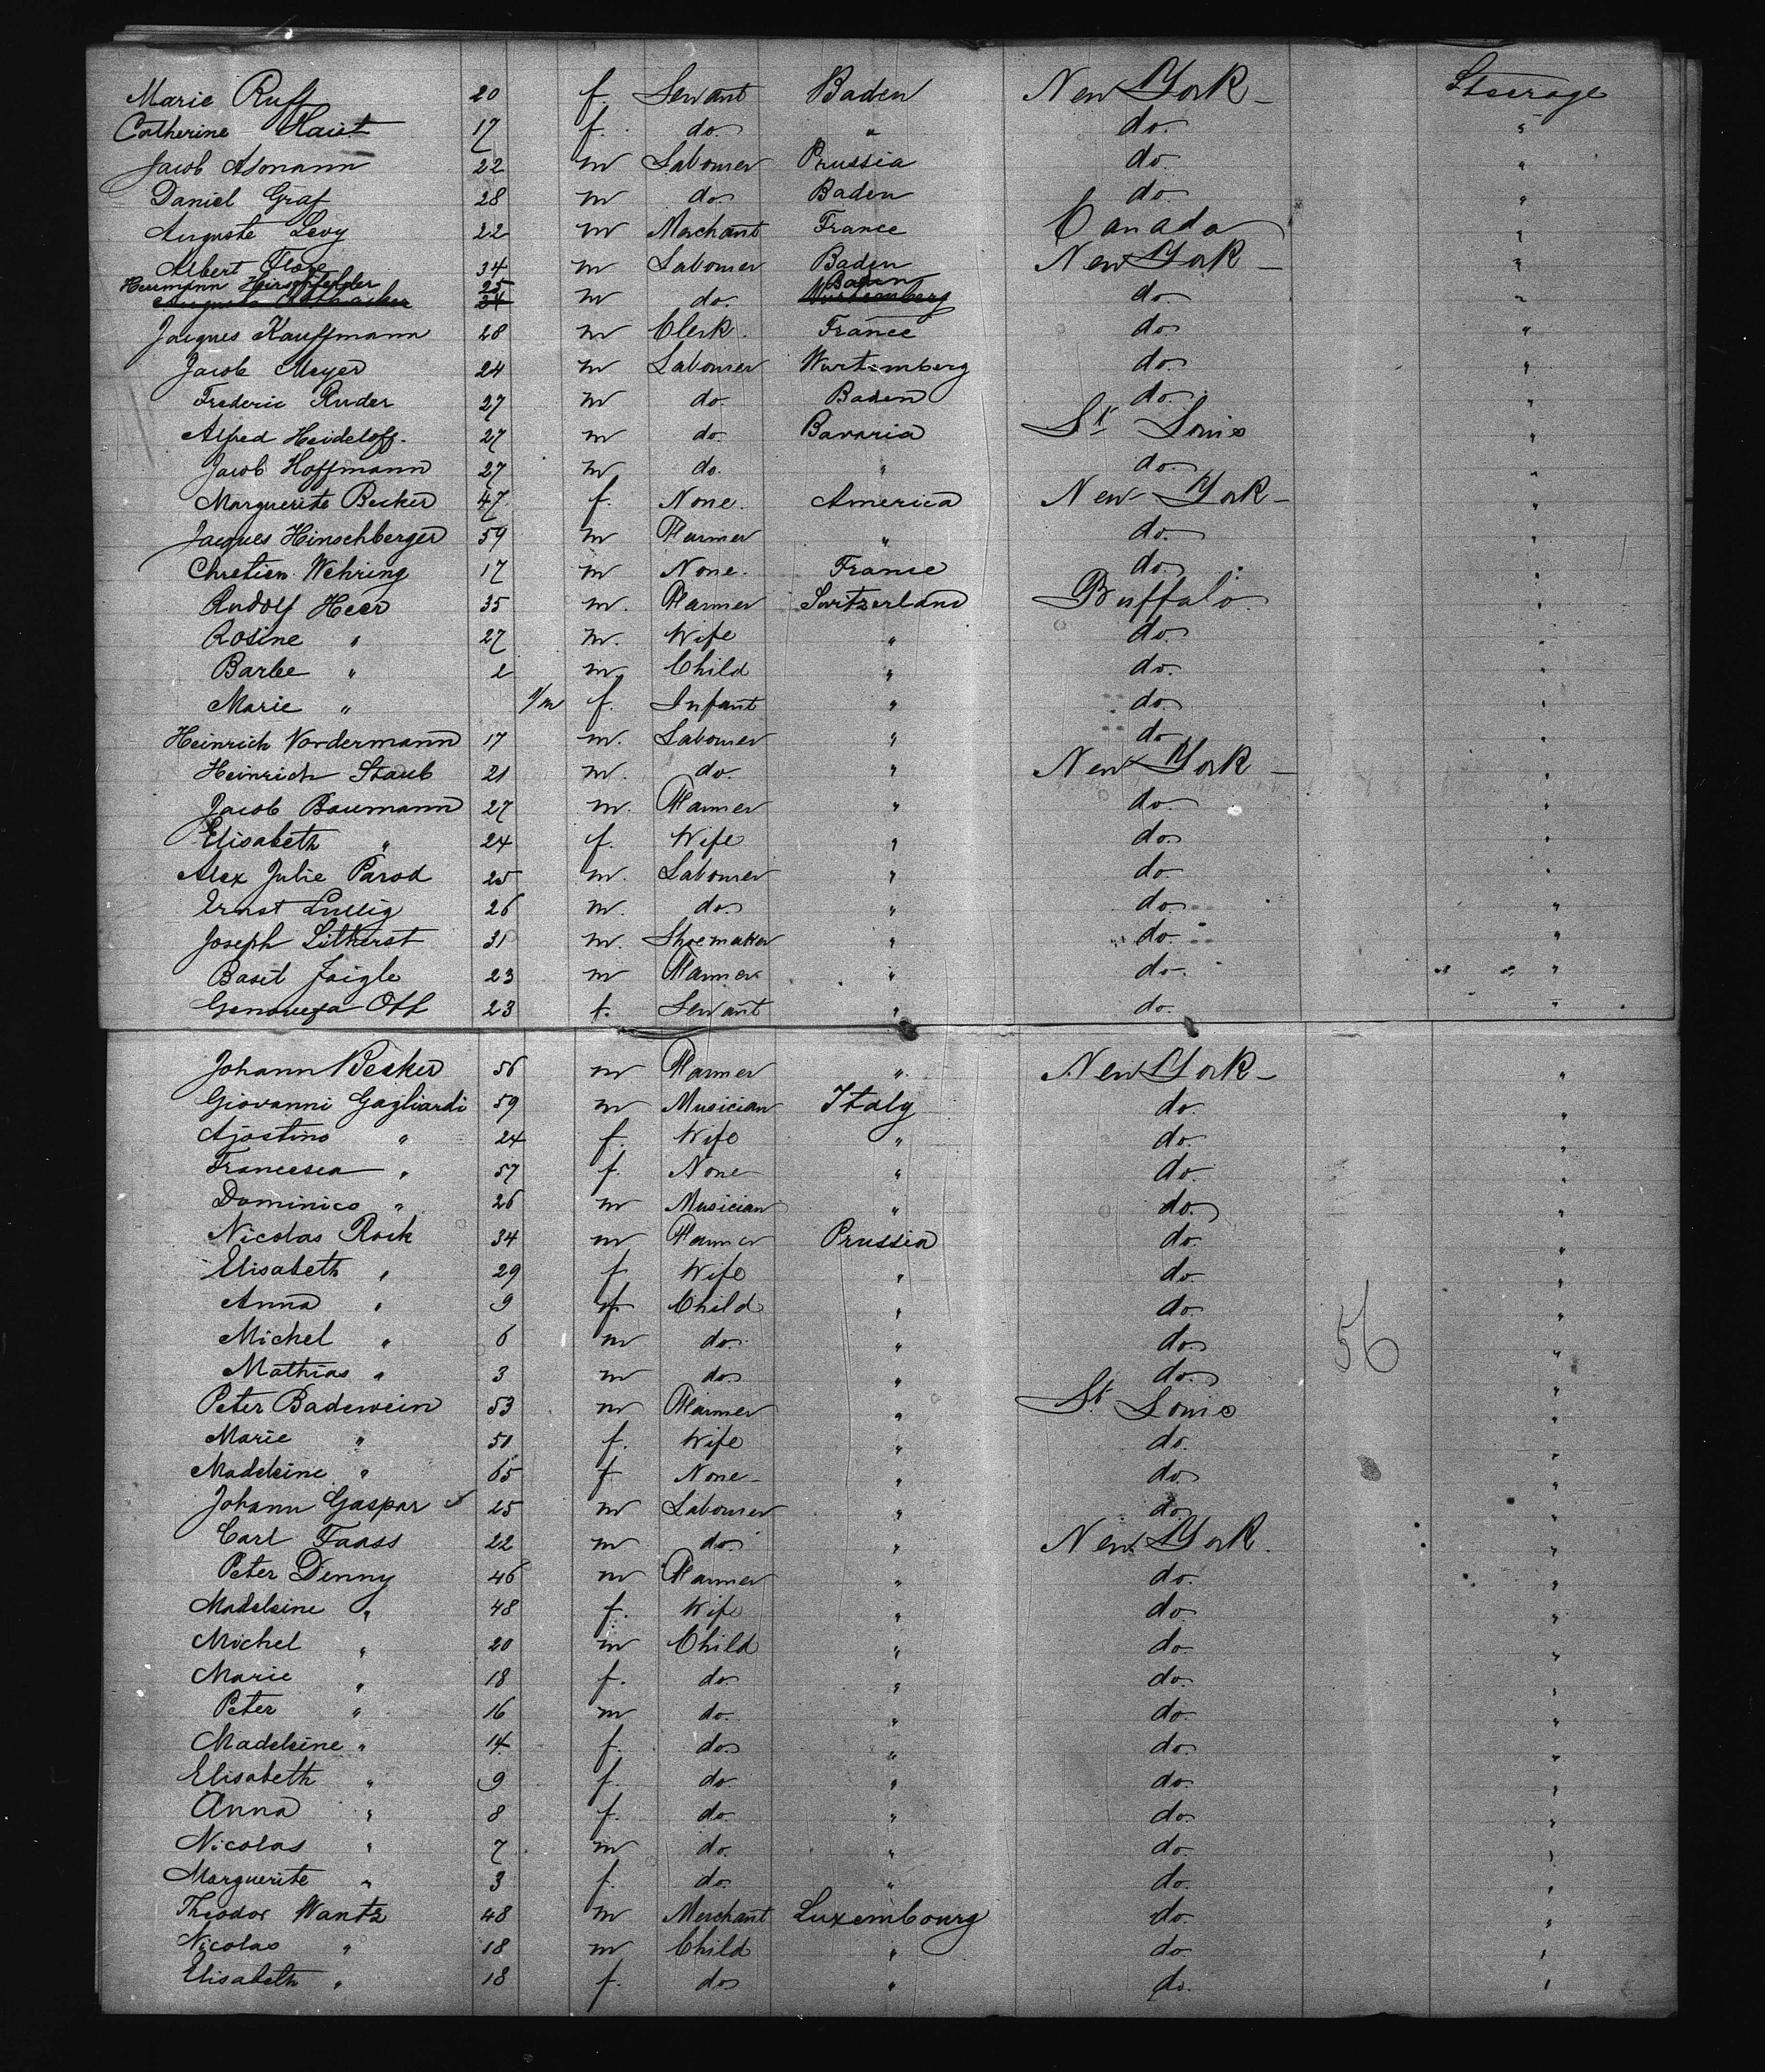 Marie Ruff 20 f. Servant Baden New York Steerage
Catherine Haist 17 f. do. " do. "
Jacob Asmann 22 m Labourer Prussia do. "
Daniel Graf 28 m do. Baden do. "
Auguste Levy 22 m Merchant France Canada "
Albert Floge 34 m Labourer Baden New York "
Herrmann Hirschfelder 25 Baden
24 m do. Wurtemberg do. "
Jacques Kauffmann 28 m Clerk. France do. "
Jacob Meyer 24 m Labourer Wurtemberg do. "
Frederic Ruder 27 m do. Baden do. "
Alfred Heideloff. 27 m do. Bavaria St Louis "
Jacob Hoffmann 27 m do. " do. "
Marguerite Becker 47 f. None. America New York "
Jacques Hinschberger 59 m Farmer " do. "
Chretien Wehring 17 m None. France do. "
Rudolf Heer 35 m. Farmer Switzerland Buffalo "
Rosine " 27 m. Wife " do. "
Barbe " 2 m. Child " do. "
Marie " 1/m f. Infant " do. "
Heinrich Vordermann 17 m. Labourer " do. "
Heinrich Staub 21 m. do. " New York "
Jacob Baumann 27 m. Farmer " do. "
Elisabeth " 24 f. Wife " do. "
Alex Julie Parod 25 m. Labourer " do. "
Ernst Lullig 26 m. do. " do. "
Joseph Litherst 31 m. Shoemaker " do. "
Basil Jaigle 23 m Farmer " do. "
Genovefa Ott 23 f. Servant " do. "
Johann Becker 56 m Farmer " New York "
Giovanni Gagliardi 59 m Musician Italy do. "
Agostino " 24 f. Wife " do. "
Francesca " 57 f. None " do. "
Dominico " 26 m Musician " do. "
Nicolas Rock 34 m Farmer Prussia do. "
Elisabeth " 29 f Wife " do. "
Anna " 9 f Child " do. "
Michel " 6 m do. " do. 56 "
Mathias " 3 m do. " do. "
Peter Badewein 53 m Farmer " St Louis "
Marie " 51 f. Wife " do. "
Madeleine " 65 f None " do. "
Johann Gaspar " 25 m Labourer " do. "
Carl Faass 22 m do. " New York. "
Peter Denny 46 m Farmer " do. "
Madeleine " 48 f. Wife " do. "
Michel " 20 m Child " do. "
Marie " 18 f. do. " do. "
Peter " 16 m do. " do. "
Madeleine " 14 f. do. " do. "
Elisabeth " 9 f. do. " do. "
Anna " 8 f. do. " do. "
Nicolas " 7 m do. " do. "
Marguerite " 3 f. do. " do. "
Theodor Wantz 48 m Merchant Luxembourg do. "
Nicolas " 18 m Child " do. "
Elisabeth " 18 f. do. " do. "